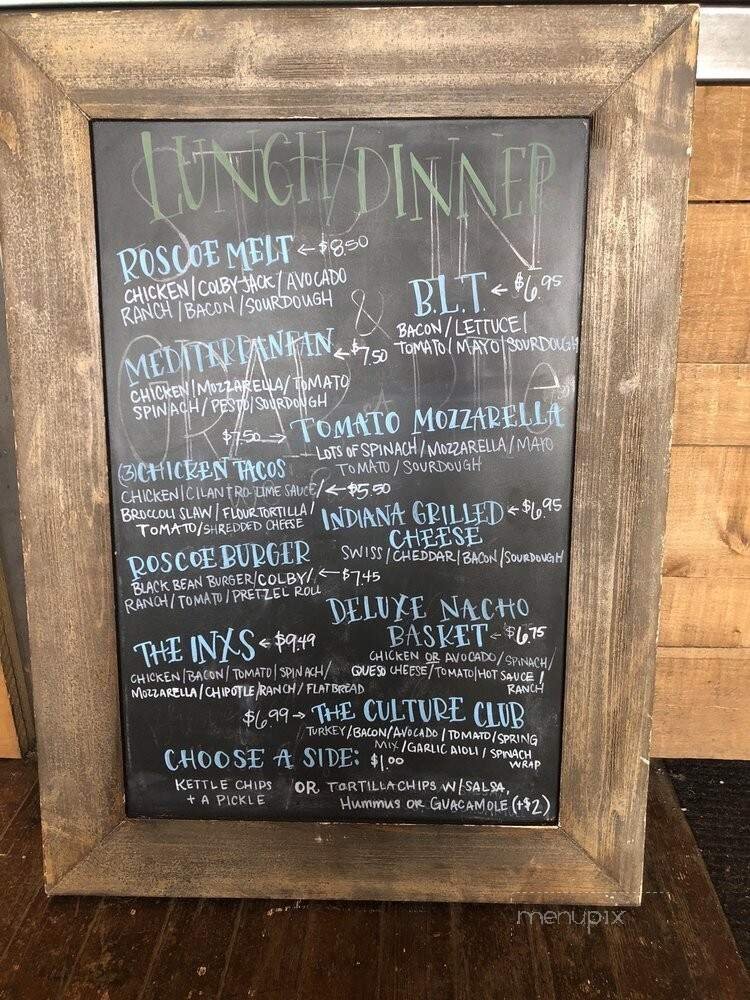 LUNCH/DINNER
ROSCOE MELT ← $8.50
CHICKEN/COLBY JACK/AVOCADO
RANCH/BACON/SOURDOUGH
B.L.T. ← $6.95
BACON/LETTUCE/
TOMATO/MAYO/SOURDOUGH
&
MEDITERRANEAN ← $7.50
CHICKEN/MOZZARELLA/TOMATO
SPINACH/PESTO/SOURDOUGH
$7.50 → TOMATO MOZZARELLA
LOTS OF SPINACH/MOZZARELLA/MAYO
TOMATO/SOURDOUGH
(3) CHICKEN TACOS
CHICKEN/CILANTRO-LIME SAUCE/ ← $5.50
BROCCOLI SLAW/FLOUR TORTILLA/
TOMATO/SHREDDED CHEESE
INDIANA GRILLED ← $6.95
CHEESE
SWISS/CHEDDAR/BACON/SOURDOUGH
ROSCOE BURGER
BLACK BEAN BURGER/COLBY/ ← $7.45
RANCH/TOMATO/PRETZEL ROLL
DELUXE NACHO
BASKET ← $6.75
CHICKEN OR AVOCADO/SPINACH/
QUESO CHEESE/TOMATO/HOT SAUCE/
RANCH
THE INXS ← $9.49
CHICKEN/BACON/TOMATO/SPINACH/
MOZZARELLA/CHIPOTLE RANCH/FLATBREAD
$6.99 → THE CULTURE CLUB
TURKEY/BACON/AVOCADO/TOMATO/SPRING
MIX/GARLIC AIOLI/SPINACH
WRAP
CHOOSE A SIDE: $1.00
KETTLE CHIPS OR TORTILLA CHIPS W/SALSA,
+ A PICKLE HUMMUS OR GUACAMOLE (+$2)
menupix